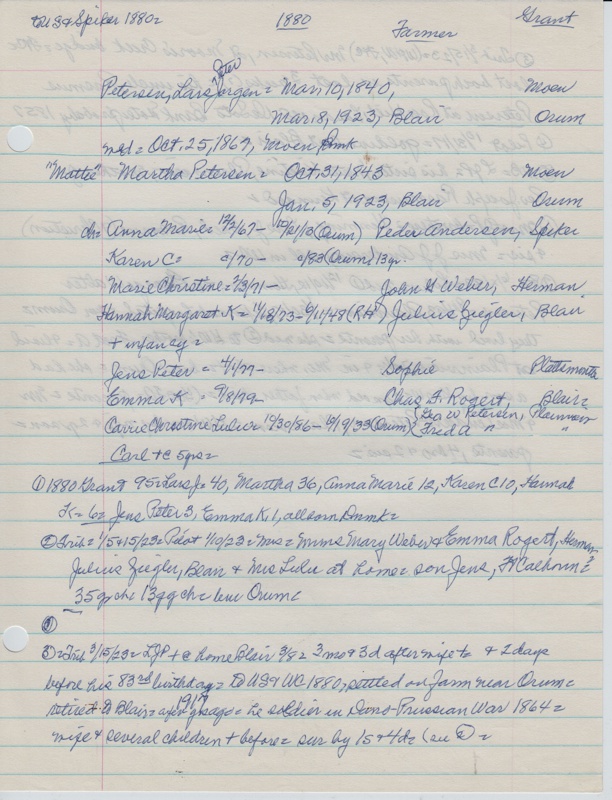 US & Spiker 1880= 1880 Farmer Grant
Peter
Petersen, Lars Jorgen = Mar. 10, 1840, Moen
Mar. 8, 1923, Blair Orum
md = Oct. 25, 1867, Moen Dmk
"Mattie" Martha Petersen = Oct. 31, 1843 Moen
Jan. 5, 1923, Blair Orum
ch = Anna Marie = 12/2/67 - 10/21/13 (Orum) Peder Andersen, Spiker
Karen C = 0/70 - 0/83 (Orum) 13 yr
Marie Christine = 7/3/71 - John H Weber, Herman
Hannah Margaret K = 11/18/73 - 6/11/48 (RH) Julius Ziegler, Blair
+ infancy =
Jens Peter = 4/1/77 - Sophie Plattsmouth
Emma K = 9/8/79 - Chris F. Rogert, Blair =
Carrie Christine Lulu = 10/30/86 - 6/19/33 (Orum) { Geo W Petersen, Plainview
Fred A " "
Carl + c 5 yrs =
① 1880 Grant 95 = Lars J = 40, Martha 36, Anna Marie 12, Karen C 10, Hannah
K = 6 = Jens Peter 3, Emma K, 1, all born Dnmk =
② Trib = 1/5 & 15/23 = Pilot 1/10/23 = Mrs = Mmes Mary Weber & Emma Rogert, Herman
Julius Ziegler, Blair & Mrs Lulu at home = son Jens, Ft Calhoun = ?
35 gch = 13 ggch = bur Orum =
③ = Trib 3/15/23 = LJP + @ home Blair 3/8 = 3 mo & 3d after wife + = & 2 days
before his 83rd birthday = To US & WC 1880, settled on farm near Orum =
1917
retired to Blair = yrs ago = he soldier in Dano-Prussian War 1864 =
wife & several children + before = sur by 1s & 4d = (see ②) =